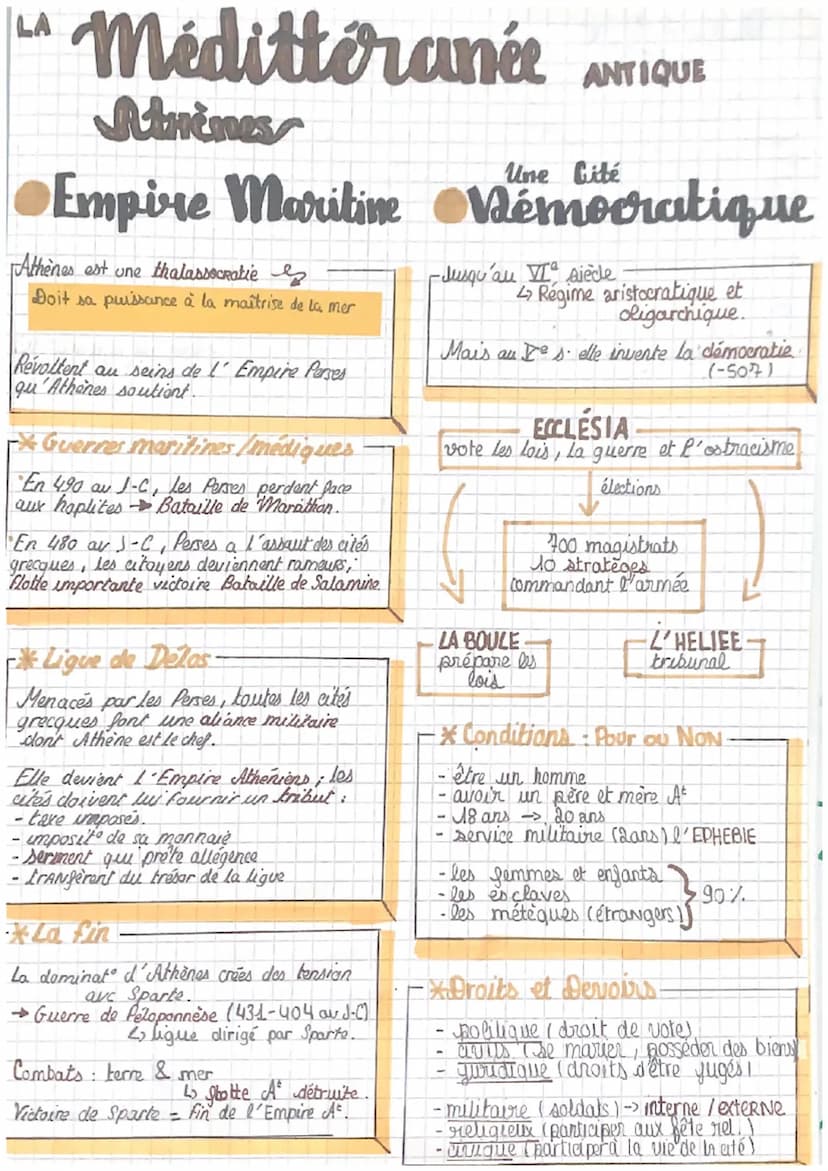 LA Médittéranée ANTIQUE
Athènes
Empire Maritine
Athènes est une thalassocratie
Doit sa puissance à la maîtrise de la mer
Révoltent au seins de l' Empire Perses
qu'Athènes soutient.
* Guerres maritines/médiques
En 490 av J-C, les Perses perdent face
aux hoplites → Bataille de Marathon.
En 480 av J-C, Perses a l'assaut des cités
grecques, les citoyens deviennent rameurs,
flotte importante victoire Bataille de Salamine
* Ligue de Délos
Menacés par les Perses, toutes les cités
grecques font une aliance militaire
dont Athène est le chef.
Elle devient l'Empire Athéniens ; les
cités doivent lui fournir un tribut :
- taxe imposés.
- imposit° de sa monnaie
- serment qui prête allégence
- tranfèrent du trésor de la ligue
* La fin
La dominat° d'Athènes crées des tension
avc Sparte.
→ Guerre de Péloponnèse (431-404 av J-C)
↳ ligue dirigé par Sparte.
Combats : terre & mer
↳ flotte Aᵗ détruite.
Victoire de Sparte = fin de l'Empire Aᵗ.
Une Cité
Démocratique
Jusqu'au VIᵉ siècle
↳ Régime aristocratique et
oligarchique.
Mais au Vᵉ s. elle invente la démocratie
(-507)
ECCLÉSIA
vote les lois, la guerre et l'ostracisme
élections
700 magistrats
10 stratèges
commandant l'armée
LA BOULE
prépare les
lois
L'HELIEE
tribunal
* Conditions : Pour ou Non
- être un homme
- avoir un père et mère Aᵗ
- 18 ans → 20 ans
- service militaire (2ans) l'EPHEBIE
- les femmes et enfants
- les esclaves
- les métèques (étrangers)
90%
* Droits et Devoirs
- politique (droit de votes)
- civils (se marier, posséder des biens)
- juridique (droits d'être jugés)
- militaire (soldats) → interne / externe
- religieux (participer aux fête rel.)
- civique (participer à la vie de la cité)